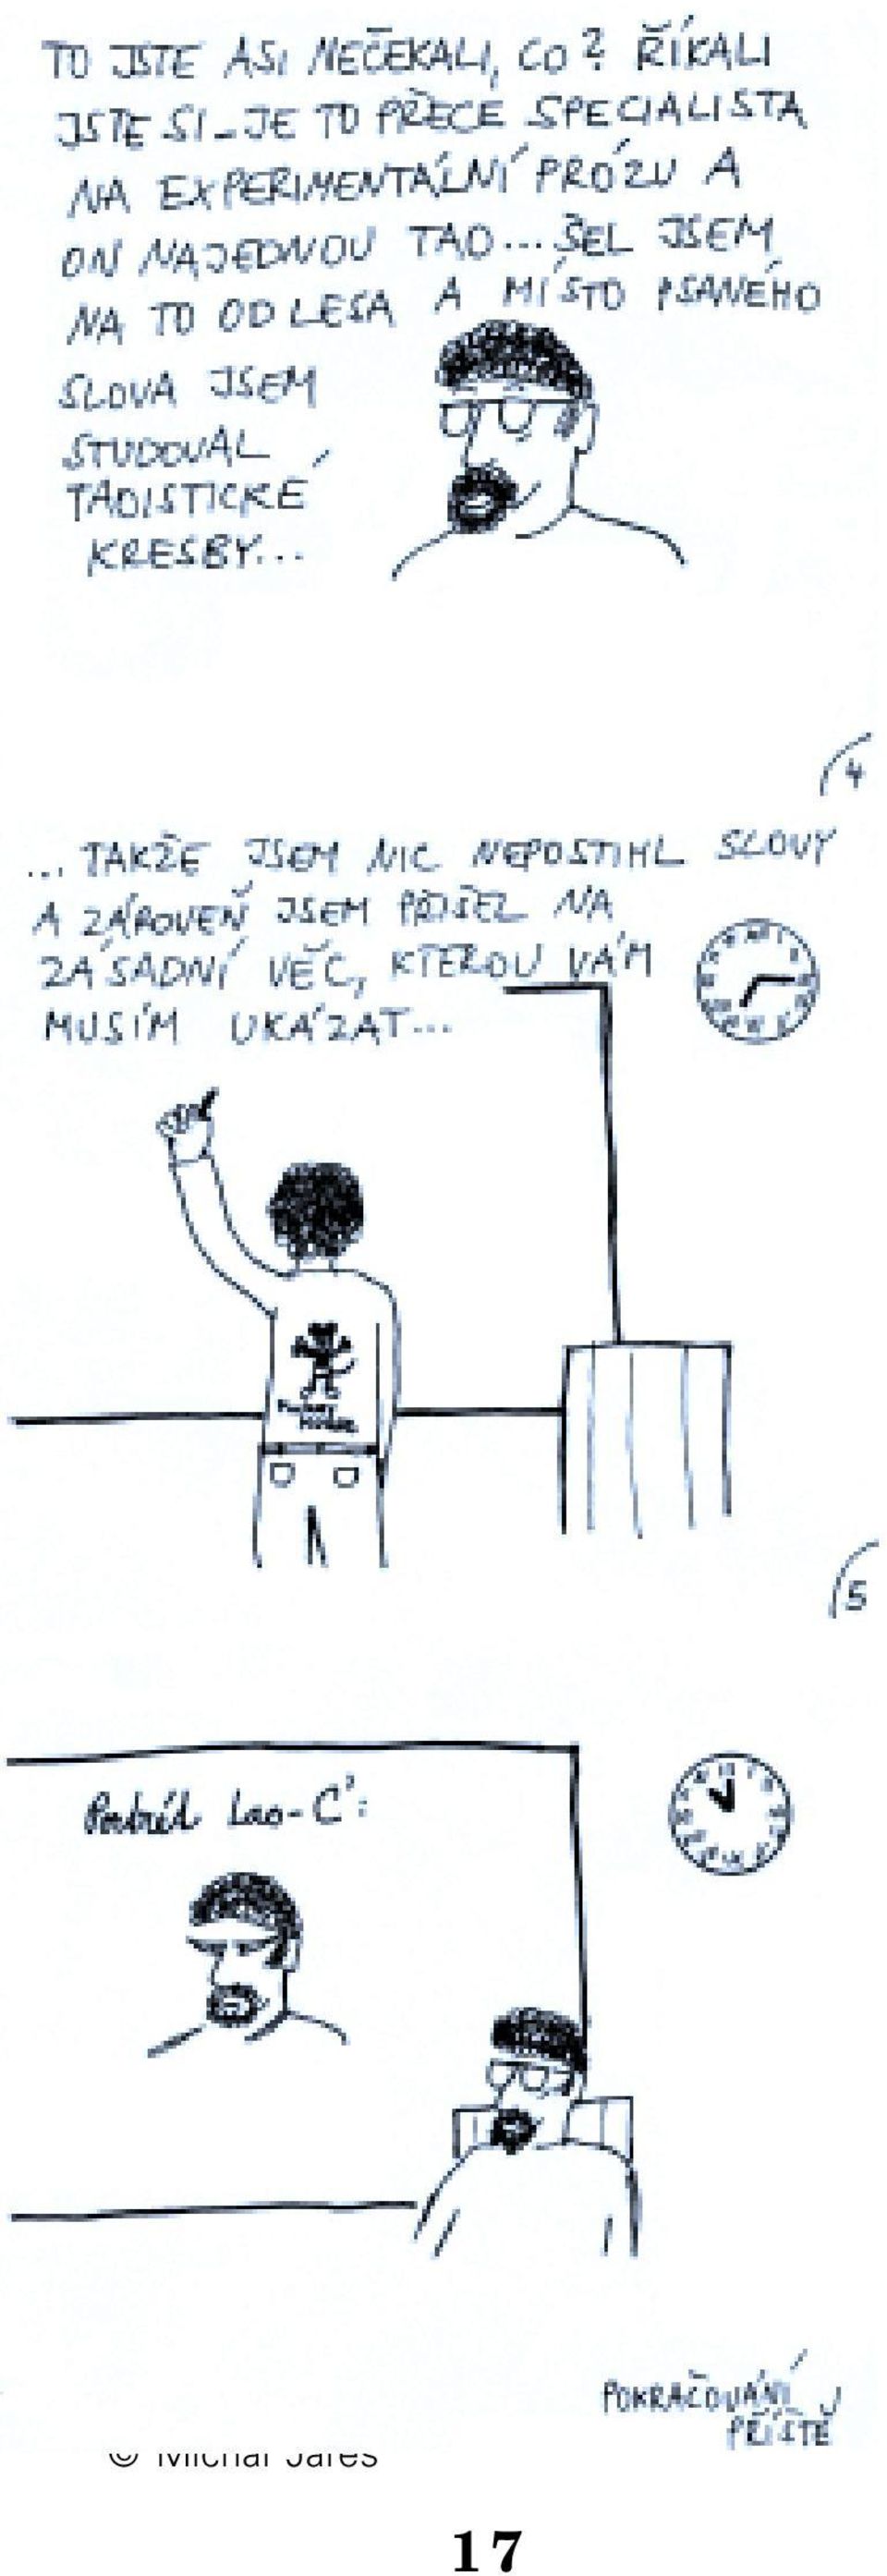 TO JSTE ASI NEČEKALI, CO? ŘÍKALI
JSTE SI - JE TO PŘECE SPECIALISTA
NA EXPERIMENTÁLNÍ PRÓZU A
ON NAJEDNOU TAO... ŠEL JSEM
NA TO OD LESA A MÍSTO PSANÉHO
SLOVA JSEM
STUDOVAL
TAOISTICKÉ
KRESBY...
4
... TAKŽE JSEM NIC NEPOSTIHL SLOVY
A ZÁROVEŇ JSEM PŘIŠEL NA
ZÁSADNÍ VĚC, KTEROU VÁM
MUSÍM UKÁZAT...
5
Portrét Lao-C':
POKRAČOVÁNÍ
PŘÍŠTĚ
© Michal Jareš
17